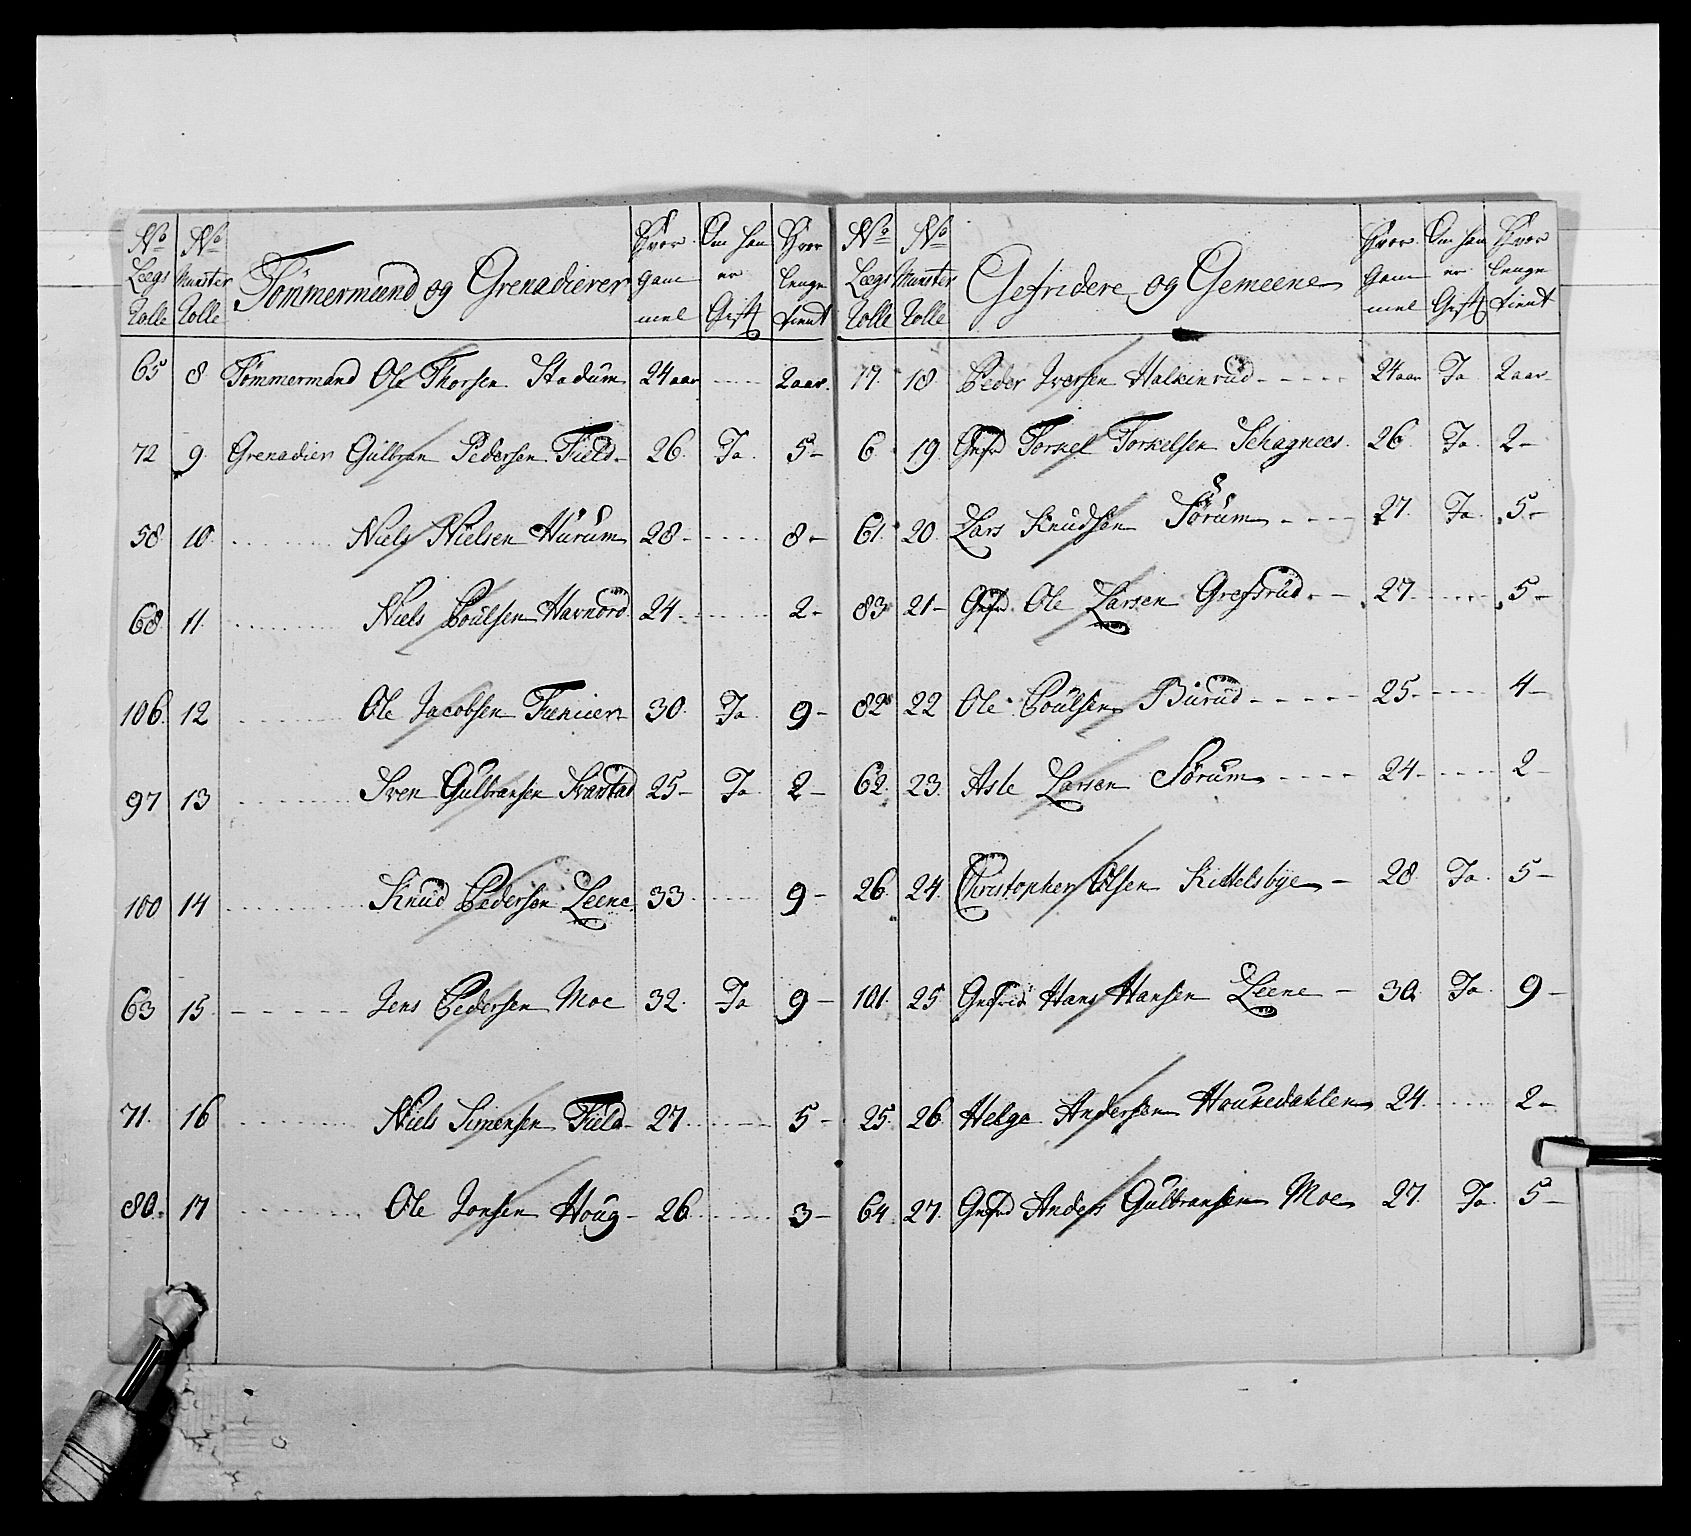 No Lægs Rolle | No Munster Rolle | Tömmermænd og Grenadierer | Hvor gam mel | Om han er Gift | Hvor lenge tient
65 | 8 | Tömmermand Ole Thorsen Stadum | 24 aar | ---- | 2 aar.
72 | 9 | Grenadier Gulbran Pedersen Field | 26. | Ja. | 5-
58 | 10 | Niels Nielsen Hurum | 28- | ---- | 8-
68 | 11. | Niels Poulsen Havnord | 24. | ---- | 2-
106 | 12 | Ole Jacobsen | 30. | Ja. | 9-
97 | 13 | Sven Gulbransen Svarstad | 25- | Ja. | 2-
100 | 14 | Knud Pedersen Leene | 33 | ---- | 9-
63 | 15. | Jens Pedersen Moe | 32. | Ja | 9-
71. | 16 | Niels Simensen Field | 27. | ---- | 5-
80. | 17 | Ole Jonsen Houg | 26. | ---- | 3-
No Lægs Rolle | No Munster Rolle | Gefridere og Gemeene | Hvor Gam mel | Om han er Gift | Hvor lenge tient
17. | 18 | Peder Iversen Halkinrud | 24 aar | Ja | 2 aar-
6 | 19. | Gefrd Torkel Torkelsen | 26 | Ja. | 2-
61 | 20. | Lars Knudsen Sörum | 27. | Ja. | 5-
83 | 21- | Gefrd. Ole Larsen Grefsrud | 27. | ---- | 5-
82 | 22 | Ole Poulsen Burud | 25- | ---- | 4-
62. | 23. | Asle Larsen Sörum | 24- | ---- | 2-
26. | 24. | Christopher Olsen Kittelsbye | 28 | Ja. | 5-
101. | 25 | Gefrid Hans Hansen Leene | 30. | Ja. | 9-
25. | 26 | Helge Andersen Haukedahlen | 24. | ---- | 2-
64 | 27. | Gefrd Anders Gulbransen Moe | 27. | Ja | 5-